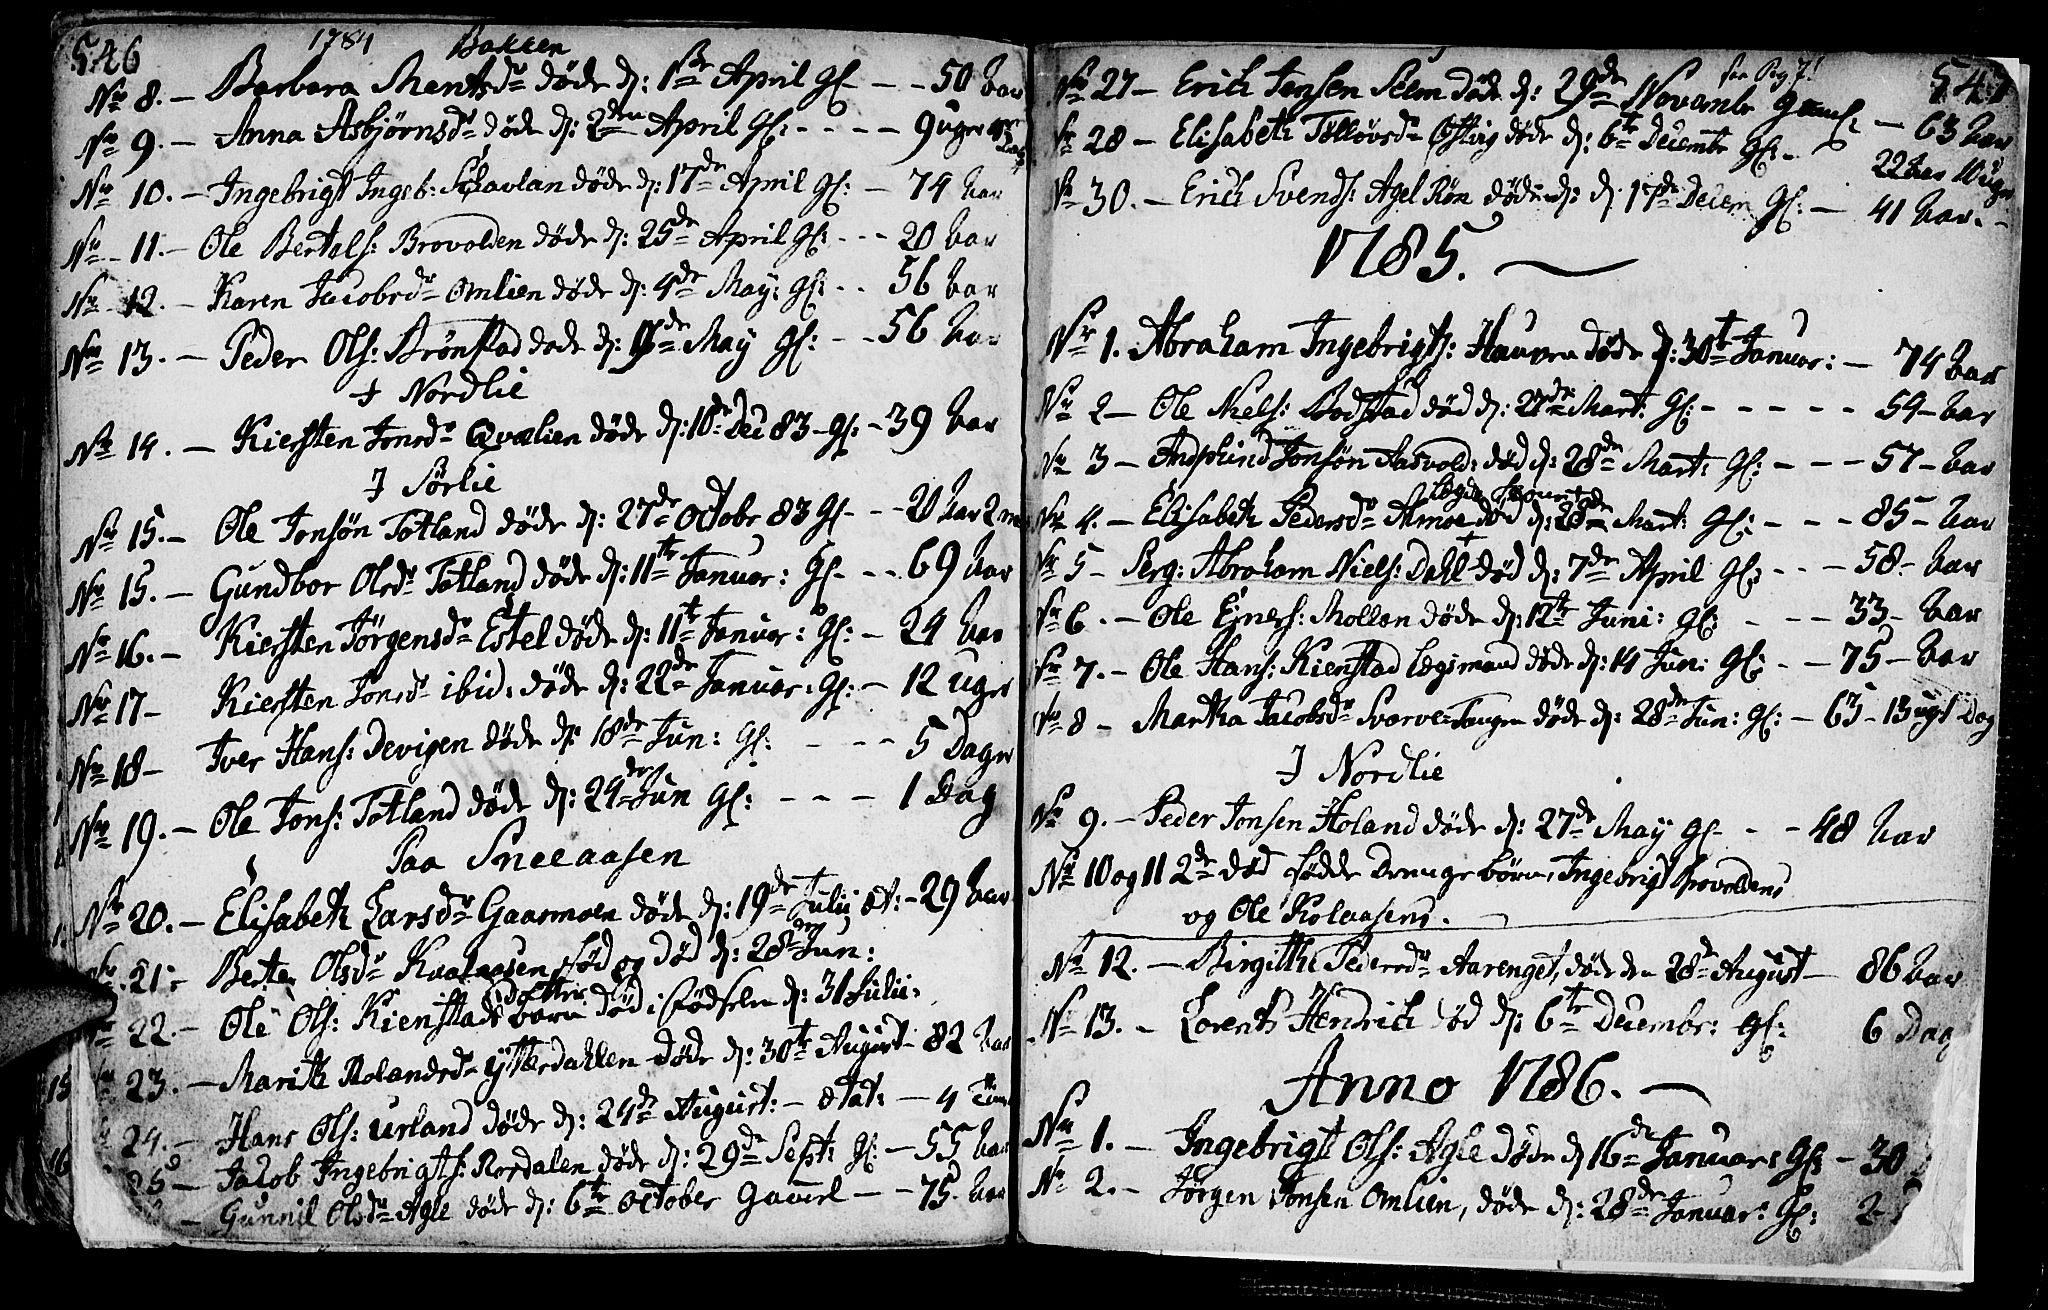 546 1784 Bakken
No 8. – Barbara Mentsdr døde d: 1ste April gl – – 50 Aar
No 9. – Anna Asbjørnsdr døde d: 2den April gl: – – – – 9 uger
No 10. – Ingebrigt Ingeb: Schavlan døde d: 17de April gl: – 74 Aar
No 11. – Ole Bertels: Brovolden døde d: 25de April gl: – – – 20 Aar
No 12. – Karen Jacobsdr Omlien døde d: 4de May: gl: – – 56 Aar
No 13. – Peder Ols: Brønstad døde d: May gl: – – 56 Aar
I Nordlie
No 14. – Kiersten Jonsdr Qvælien døde d: 10de Dec 83 – gl: – 39 Aar
I Sørlie
No 15. – Ole Jonsøn Totland døde d: 27de Octobr 83 gl – – 20 Aar 2
No 15. – Gundbor Olsdr Totland døde d: 11te Januar: gl – – – 69 Aar
No 16. – Kiersten Jørgensdr Estel døde d: 11te Januar: gl: – 24 Aar
No 17 – Kiersten Jonsdr ibid: døde d: 22de Januar: gl: – 12 uger
No 18 – Iver Hans: Devigen døde d: 18de Jun: gl: – – – – 5 Dager
No 19. – Ole Jons: Totland døde d: 24de Jun gl: – – – – 1 Dag
Paa Sneeaasen
No 20. – Elisabeth Larsdr Gaasmoen døde d: 19de Julii æt: – 29 Aar
21 – Olsdr Kvalaasen fød og død d: 28de Jun:
22. – Ole Ols: Kienstads barn død i fødselen d: 31 Julii:
23. – Marith Rolandsdr Ytterdahlen døde d: 30te August – 82 Aar
24. – Hans Ols: Urland døde d: 24de August: – ætat: – 4
25 – Jacob Ingebrigts: Rørdalen døde d: 29de Sept: gl: – 55 Aar
– Gunnil Olsdr Agle døde d: 6te October – – 75. Aar
547
No 27 – Erich Jonsen Seem døde d: 29de Novembr – 63 Aar
No 28 – Elisabeth Tølløvsdr Østvig døde d: 6te Decembr gl: – 22 Aar 10 uger
No 30. – Erich Svends: Agel Røn døde d: d 17de Decem gl: – 41 Aar. –
1785. –
No 1. Abraham Ingebrigts: Hauvra døde d: 30te Januar: – 74 Aar
No 2 – Ole Niels: Bodstad død d: 27de Mart: gl: – – – – – 59 – Aar
No 3 – Jonsøn Aasvold: død d: 28de Mart: gl: – – – 57 – Aar
No 4. – Elisabeth Pedersdr Almoe død d: 28de Mart: gl: – – – 85 – Aar
No 5 – Serg: Abraham Niels: Dahl død d: 7de April gl: – – – 58 – Aar
No 6. – Ole Ejners: Mollan døde d: 12te Juni: gl: – – – 33 – Aar
No 7. – Ole Hans: Kienstad Legsmand døde d: 14 Jun: gl: – – 75 – Aar
No 8 – Martha Jacobsdr Svarve-Tangen døde d: 28de Jun: gl: – 63 – 13 ug: Dag
I Nordlie
No 9. – Peder Jonsen Holand døde d: 27de May gl – – – 48 Aar
No 10 og 11 2de død fødde Drenge børn, Ingebrigt Brovoldens
og Ole Kolaasens.
No 12. – Birgithe Pedersdr Aarenget, døde den 28de August – 86 Aar
No 13. – Lorents Hendrich død d: 6te Decembr: gl: 6 Dag
Anno 1786. –
No 1. – Ingebrigt Ols: Agle døde d 16de Januar: gl: – 30
No 2. – Jørgen Jonsen Omlien, døde d: 28de Januar: gl: 2